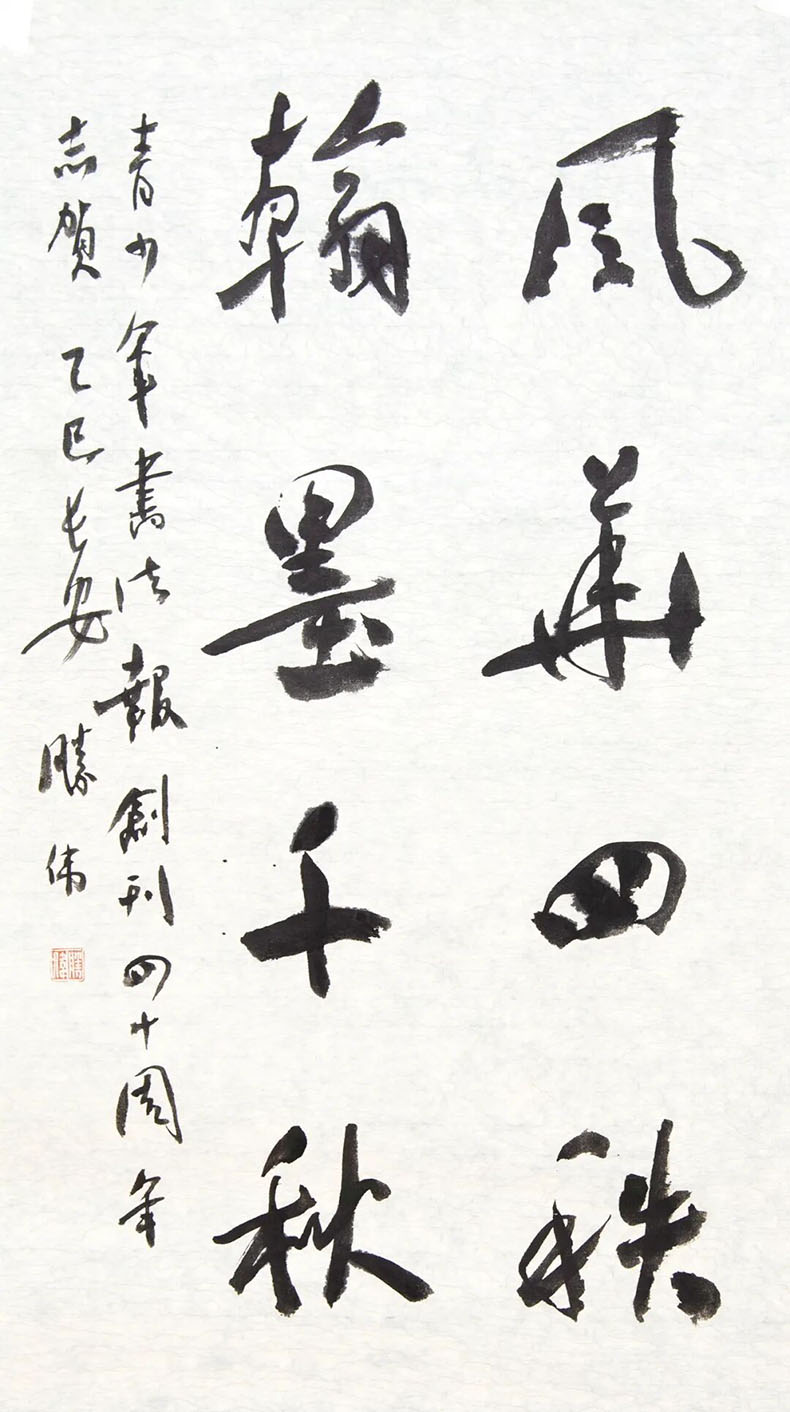 風華四秩
翰墨千秋
青少年書法報創刊四十周年
志賀 乙巳長安
勝偉